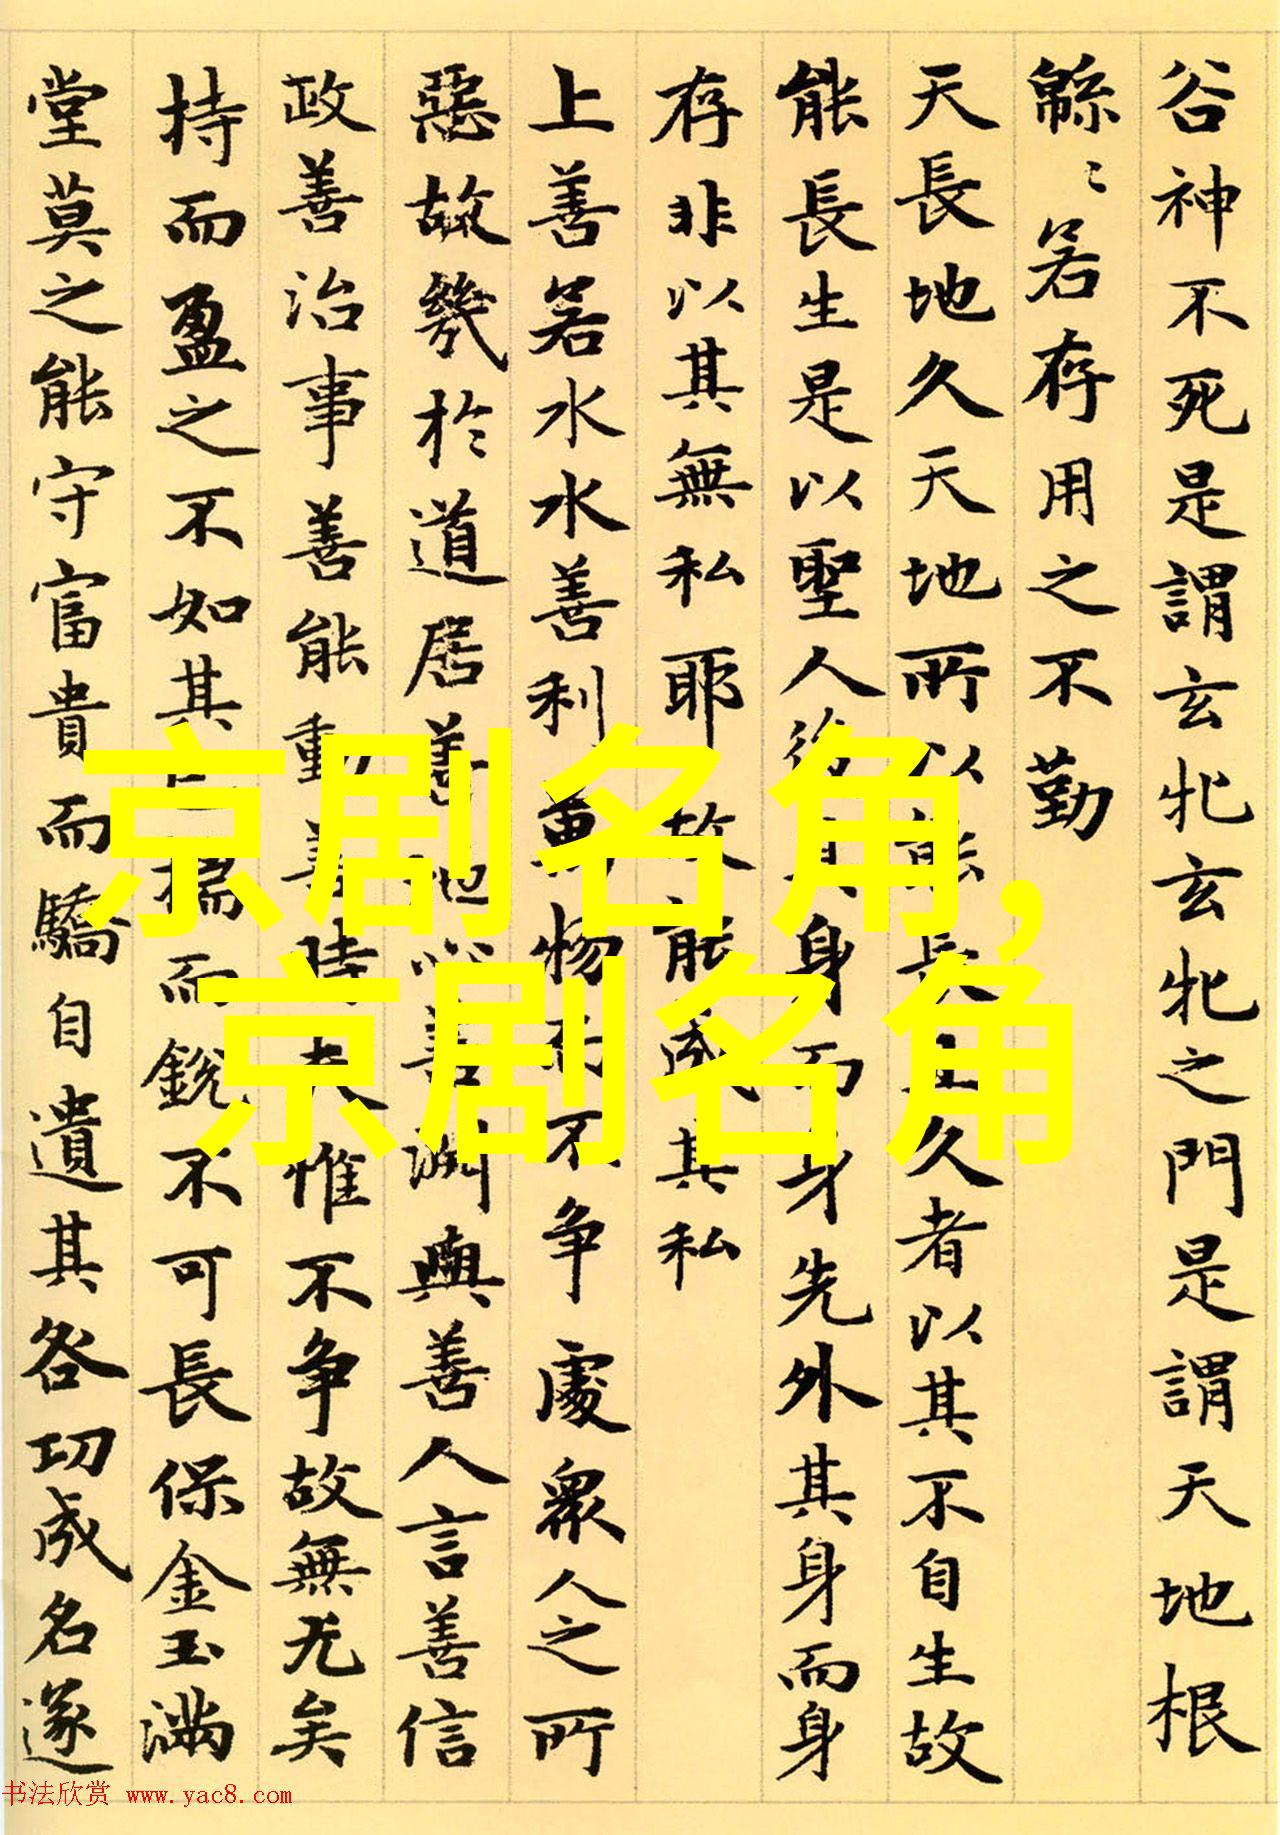 谷神不死是謂玄牝玄牝之門是謂天地根
緜〻若存用之不勤
天長地久天地所以能長且久者以其不自生故
能長生是以聖人後其身而身先外其身而身
存非以其無私耶故能成其私
上善若水水善利萬物而不争處衆人之所
惡故幾於道居善地心善渊與善人言善信
政善治事善能動善時夫惟不争故無尤矣
持而盈之不如其已揣而銳不可長保金玉滿
堂莫之能守富貴而驕自遺其咎功成名遂
京剧名角,
京剧名角
书法欣赏 www.yac8.com